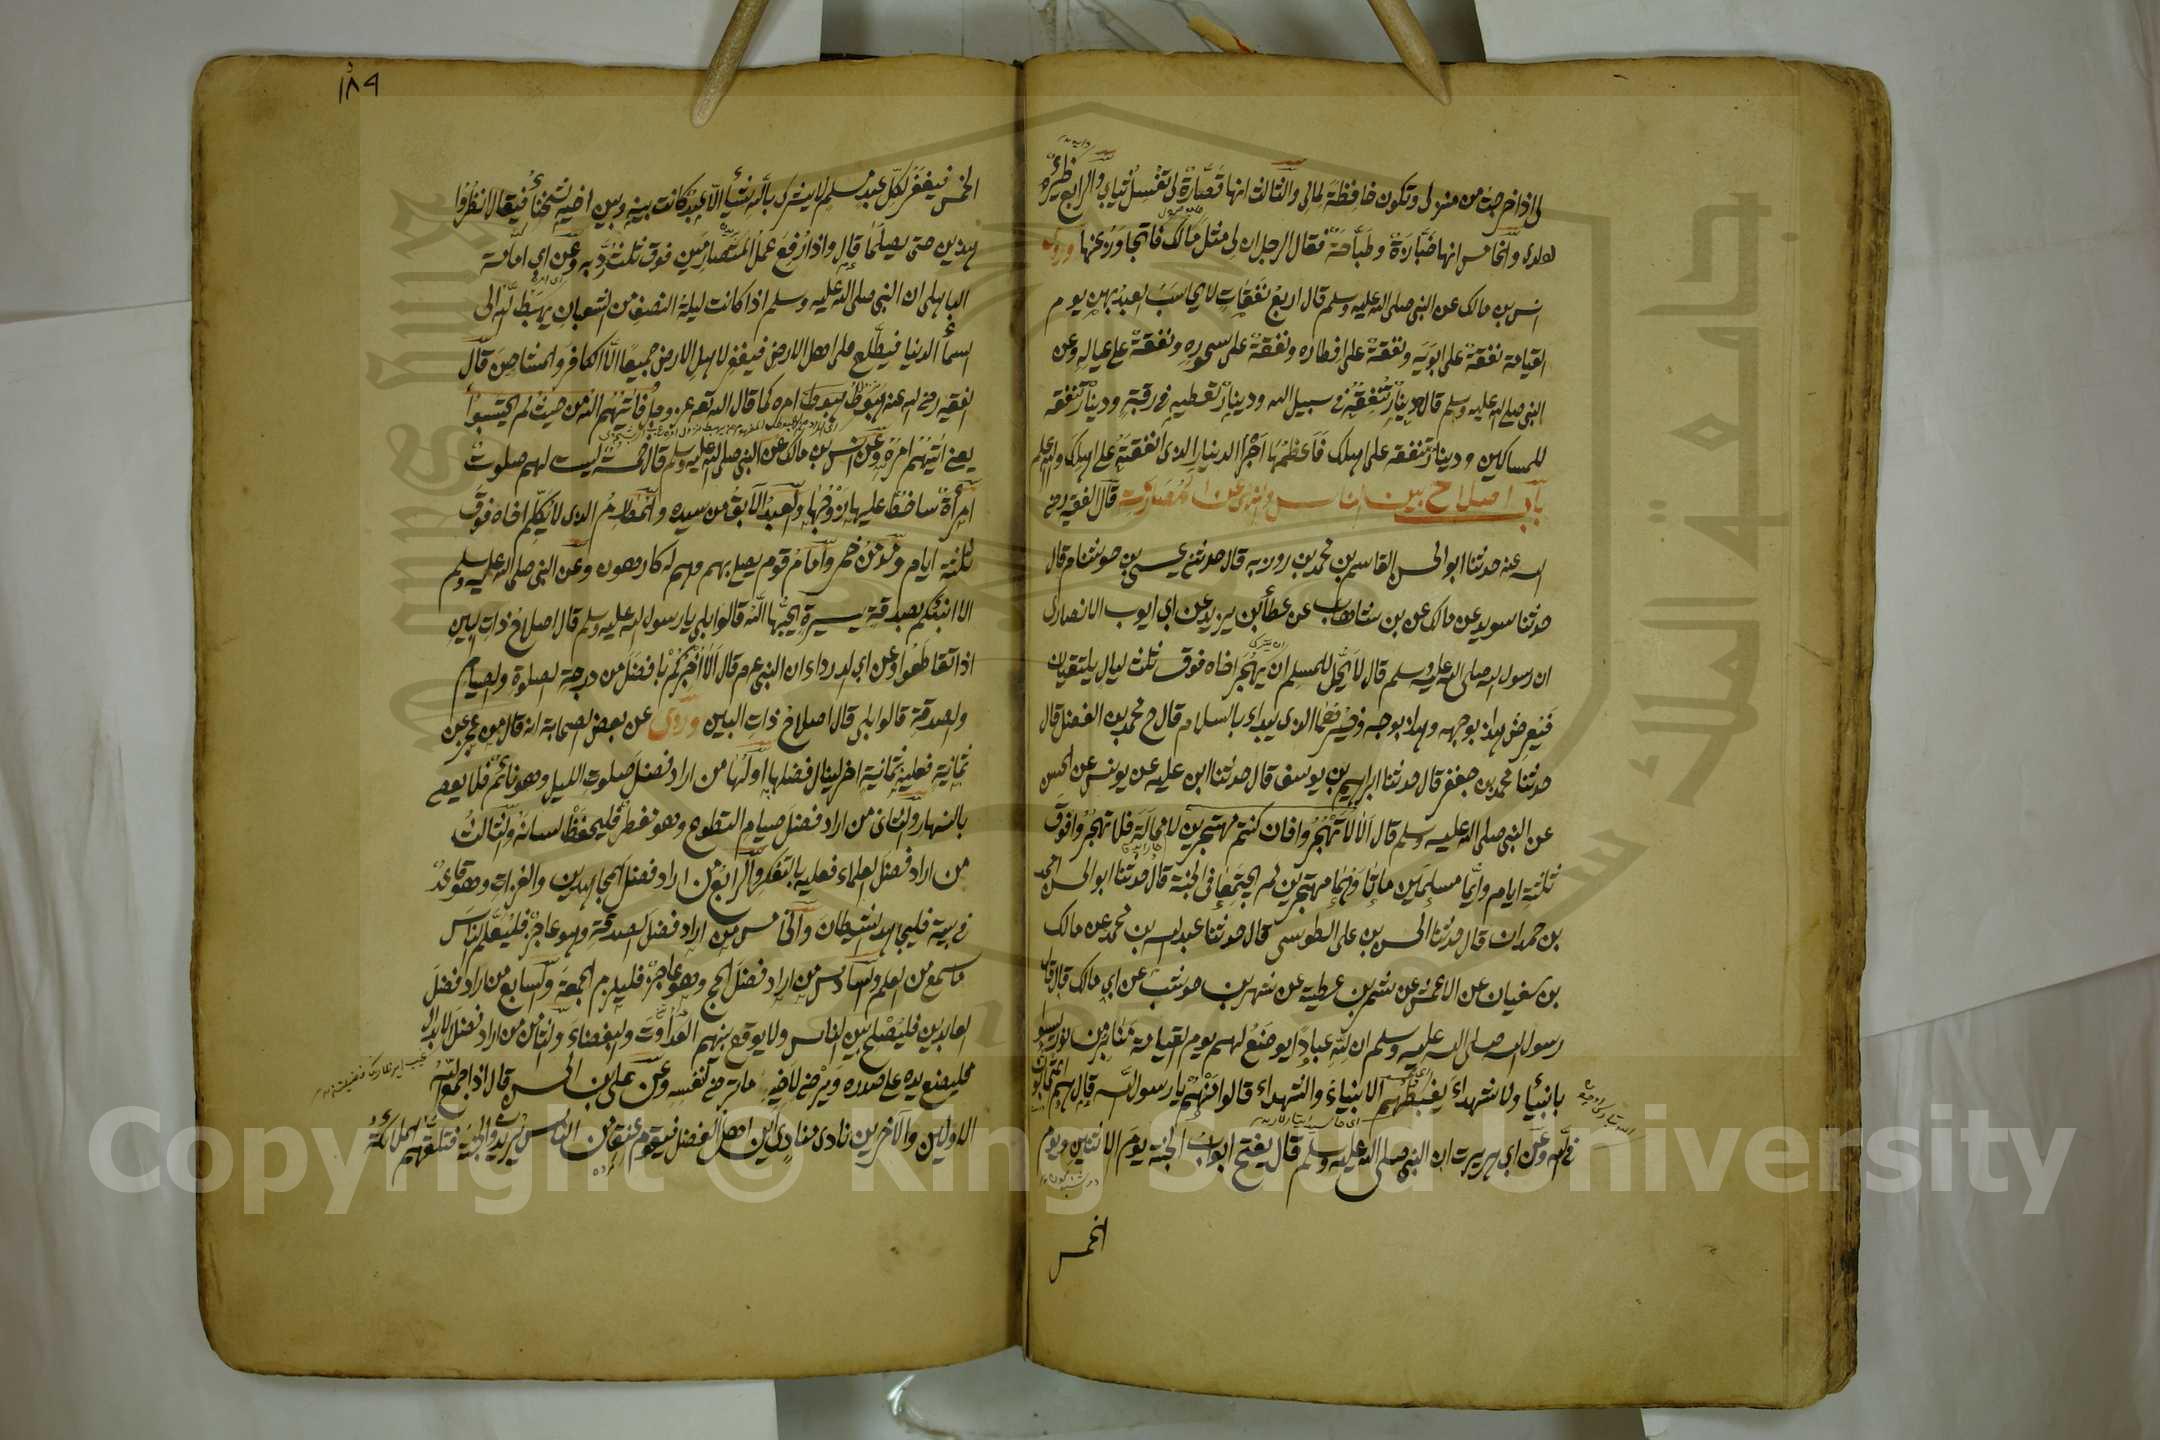 لى اذا خرجت من منزلى وتكون حافظة لمالى والثالث انها قصارة لى تغسل ثيابى والرابع ظئرة
لولدى والخامس انها خبازة وطباخة فقال الرجل ان لى مثل مالك فاتجاوز عنها وروى
انس بن مالك عن النبى صلى الله عليه وسلم قال اربع نفقات لا يحاسب العبد بهن يوم
القيامة نفقة على ابويه ونفقة على افطاره ونفقة على سحوره ونفقة على عياله وعن
النبى صلى الله عليه وسلم قال دينار تنفقه فى سبيل الله ودينار تعطيه فى رقبة ودينار تنفقه
للمساكين ودينار تنفقه على اهلك فاعظمها اجرا الدينار الذى انفقته على اهلك والله اعلم
باب اصلاح بين الناس والنهى عن المصارمة قال الفقيه رضى
الله عنه حدثنا ابو الحسن القاسم بن محمد بن روزبه قال حدثنى عيسى بن خوشنام قال
حدثنا سويد عن مالك عن بن شهاب عن عطاء بن يزيد عن ابى ايوب الانصارى
ان رسول الله صلى الله عليه وسلم قال لا يحل للمسلم ان يهجر اخاه فوق ثلث ليال يلتقيان
فيعرض هذا بوجهه وهذا بوجه وخيرهما الذى يبداء بالسلام قال ح محمد بن الفضل قال
حدثنا محمد بن جعفر قال حدثنا ابراهيم بن يوسف قال حدثنا ابن عليه عن يونس عن الحسن
عن النبى صلى الله عليه وسلم قال الا لا تهجروا فان كنتم مهتجرين لا محالة فلا تهجروا فوق
ثلثة ايام وايما مسلمين ماتا وهما مهتجرين لم يجتمعا فى الجنة قال حدثنا ابو الحسن احمد
بن حمدان قال حدثنا الحسن بن على الطوسى قال حدثنا عبد الله بن محمد عن مالك
بن سفيان عن الاعمش عن شمر بن عطية عن شهر بن حوشب عن ابى مالك قال قال
رسول الله صلى الله عليه وسلم ان لله عبادا يوضع لهم يوم القيامة منابر من نور ليسوا
بانبياء ولا شهداء يغبطهم الانبياء والشهداء قالوا من هم يا رسول الله قال هم المتحابون
فى الله وعن ابى هريرت ان النبى صلى الله عليه وسلم قال يفتح ابواب الجنة يوم الاثنين ويوم
الخمس
١٨٩
الخمس فيغفر لكل عبد مسلم لا يشرك بالله شيأ الا عبد كانت بينه وبين اخيه شحناء فيقال انظروا
هذين حتى يصلحا قال واذا رفع عمل المتصارمين فوق ثلث رد به وعن ابى امامة
الباهلى ان النبى صلى الله عليه وسلم اذا كانت ليلة النصف من الشعبان يهبط الله الى
السماء الدنيا فيطلع على اهل الارض فيغفر لاهل الارض جميعا الا الكافر والمشاحن قال
الفقيه رضى الله عنه الهبوط هبوط امره كما قال الله تعالى عز وجل فاتيهم الله من حيث لم يحتسبوا
يعنى اتيهم امره وعن انس بن مالك عن النبى صلى الله عليه وسلم قال خمسة ليست لهم صلوت
امرأة ساخط عليها زوجها والعبد الآبق من سيده والمصارم الذى لا يكلم اخاه فوق
ثلثة ايام ومدمن خمر وامام قوم يصلى بهم وهم له كارهون وعن النبى صلى الله عليه وسلم
الا انبئكم بصدقة يسيرة يحبها الله قالوا بلى يا رسول الله عليه وسلم قال اصلاح ذات البين
اذا تقاطعوا وعن ابى الدرداء ان النبى عم قال الا اخبركم بافضل من درجة الصلوة والصيام
والصدقة قالوا بلى قال اصلاح ذات البين وروى عن بعض الصحابة انه قال من عجز عن
ثمانية فعليه ثمانية اخر لينال فضلها اولها من اراد فضل صلوت الليل وهو نائم فلا يعص
بالنهار والثانى من اراد فضل صيام التطوع وهو مفطر فليحفظ لسانه والثالث
من اراد فضل العلماء فعليه بالتفكر والرابع من اراد فضل المجاهدين والغزات وهو قاعد
فى بيته فليجاهد الشيطان والخامس من اراد فضل الصدقة وهو عاجز فليعلم الناس
ما سمع من العلم والسادس من اراد فضل الحج وهو عاجز فليلزم الجمعة والسابع من اراد فضل
العابدين فليصلح بين الناس ولا يوقع بينهم العداوت والبغضاء والثامن من اراد فضل الابدال
فليضع يده على صدره ويرضى لاخيه ما رضى لنفسه وعن على بن الحسن قال اذا جمع الله
الاولين والآخرين نادى مناد اين اهل الفضل فيقوم عنق من الناس يريدون الجنة فتلقهم الملائكة
Copyright © King Saud University
جامعة الملك سعود